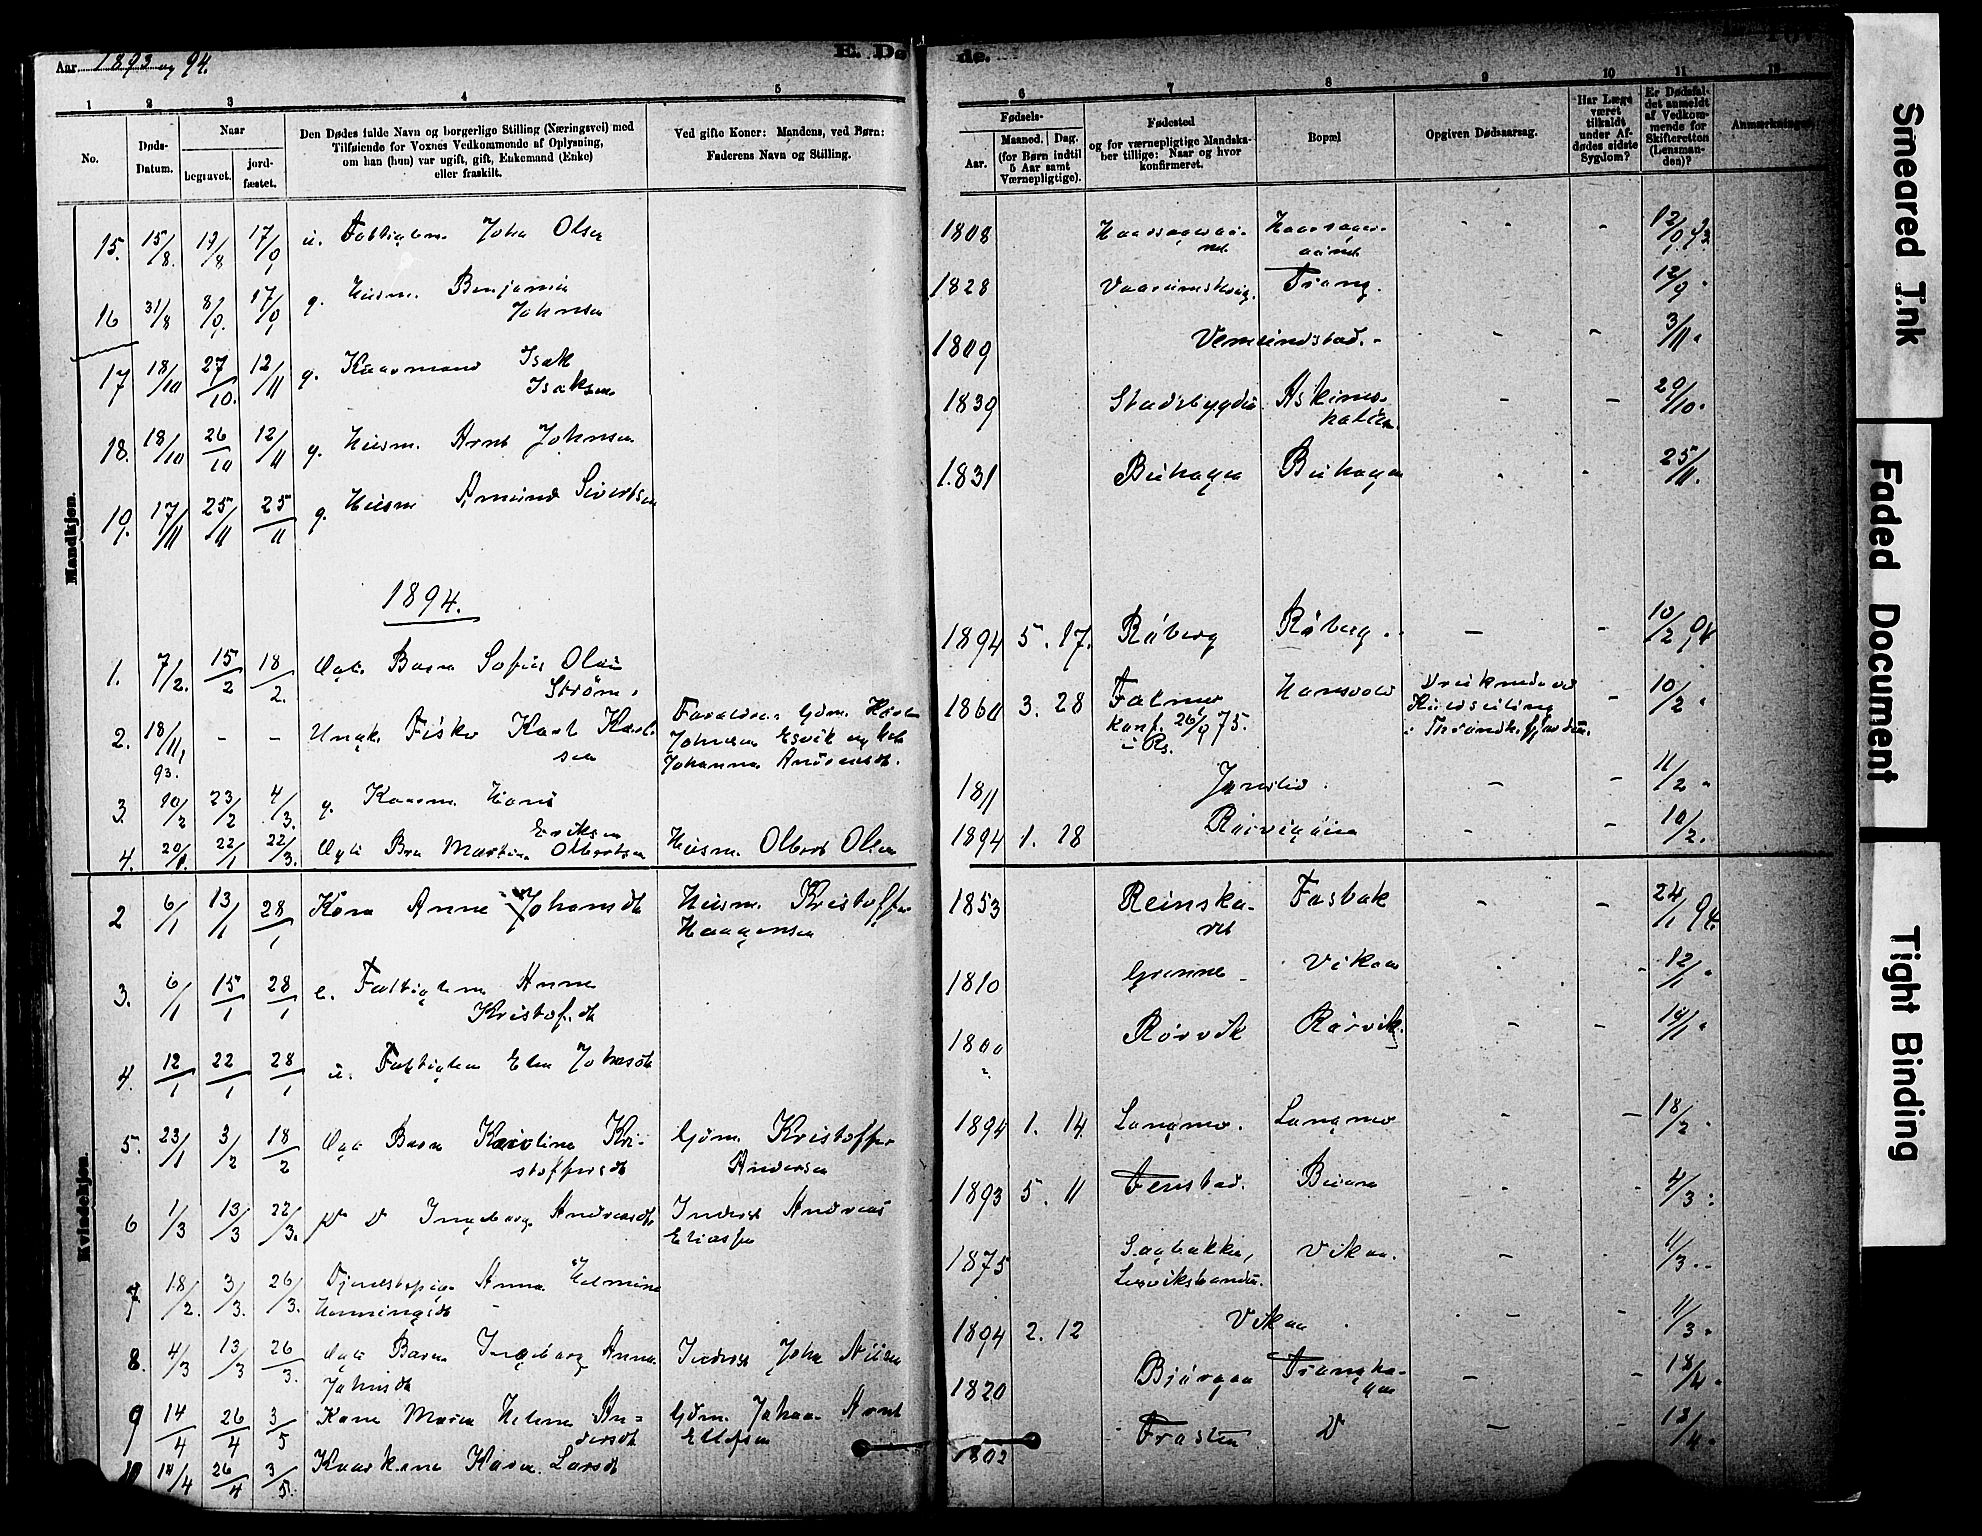 Aar 1893 og 94.
E. Dø
de.
1 2 3 4 5 6 7 8 9 10 11 12
No.
Døds-
Datum.
Naar
begravet.
jord-
fæstet.
Den Dødes fulde Navn og borgerlige Stilling (Næringsvei) med
Tilføiende for Voxnes Vedkommende af Oplysning,
om han (hun) var ugift, gift, Enkemand (Enke)
eller fraskilt.
Ved gifte Koner: Mandens, ved Børn:
Faderens Navn og Stilling.
Fødsels-
Aar.
Maaned. Dag.
(for Børn indtil
5 Aar samt
Værnepligtige).
Fødested
og for værnepligtige Mandska-
ber tillige: Naar og hvor
konfirmeret.
Bopæl
Opgiven Dødsaarsag.
Har Læge
været
tilkaldt
under Af-
dødes sidste
Sygdom?
Er Dødsfal-
det anmeldt
af Vedkom-
mende for
Skifteretten
(Lensman-
den)?
Anmærkninger.
Mandkjøn.
15. 15/8. 19/8 17/9 u. Fattiglem John Olsen 1808
16 31/8 8/9. 17/9 g. Husm. Benjamin Johnsen 1828 Trang. 12/9
17 18/10 27/10. 12/11 g. Kaarmand Isak Isaksen 1809 Vemundstad. 3/11
18. 18/10 26/10 12/11 g. Husm. Arnt Johnsen 1839 Stadsbygden 29/10
19. 17/11 25/11 25/11 g. Husm Amund Sivertsen 1831 Buhagen Buhagen 25/11.
1894.
1. 7/2. 15/2 18/2. Ægte Barn Sofus Olsen Strøm. 1894 5. 17. Råberg Råberg 10/2 94
2. 18/11 93. - - Ungk. Fisker Karl Karlsen Forældre: Gdm. Johnsen Esvik og Johanna 1860 3. 28 konf. 26/9 75. i Rs. Hansvold Druknede ved Kuldseiling i Throndh.fjorden. 10/2
3. 20/2 23/2 4/3. g. Kaarm. Hans Eriksen 1811 11/2
4. 20/1 22/1 22/3. Ægte Brn Martin Olbertsen Husm. Olbert Olsen 1894 1. 18 10/2.
Kvindekjøn.
2 6/1 13/1 28/1 Kone Anne Johansdt Husm. Kristoffer Haagensen 1853 Reinskavet Fasbak 24/1 94.
3. 6/1 15/1 28/1 e. Fattiglem Anne Kristofsdt 1810 Grønne Vikan 12/1
4. 12/1 22/1 28/1 u. Fattiglem Elen Johnsdt 1800 Rørvik Rørvik. 14/1
5. 23/1 3/2 18/2 Ægte Barn Karoline Kristoffersdt Gdm. Kristoffer Andersen 1894 1. 14. Langmo. Langmo 18/2
6 1/3 13/3 22/3. Ingeborg Andreasdt Inderst Andreas Eliassen 1893 5. 11 Fenstad. 4/3.
7. 18/2. 3/3. 26/3. Tjenestepige Anna Helmine Henningsdt 1875 Sagbakken, Leksvikstranden. Vikan. 11/3.
8. 4/3 13/3 26/3. Ægte Barn Ingeborg Anna Johnsdt Inderst John Nilsen 1894 2. 12 Vikan 11/3.
9 14/4 26/4 3/5 Kone Maren Helene Andersdt Gdm. Johan Arnt Ellefsen 1820 Bjørgan Tranghagen 18/4
10 14/4 26/4 3/5. Kaarkone Karen Larsdt 1802 Frosten 13/4.
Smeared Ink
Faded Document
Tight Binding